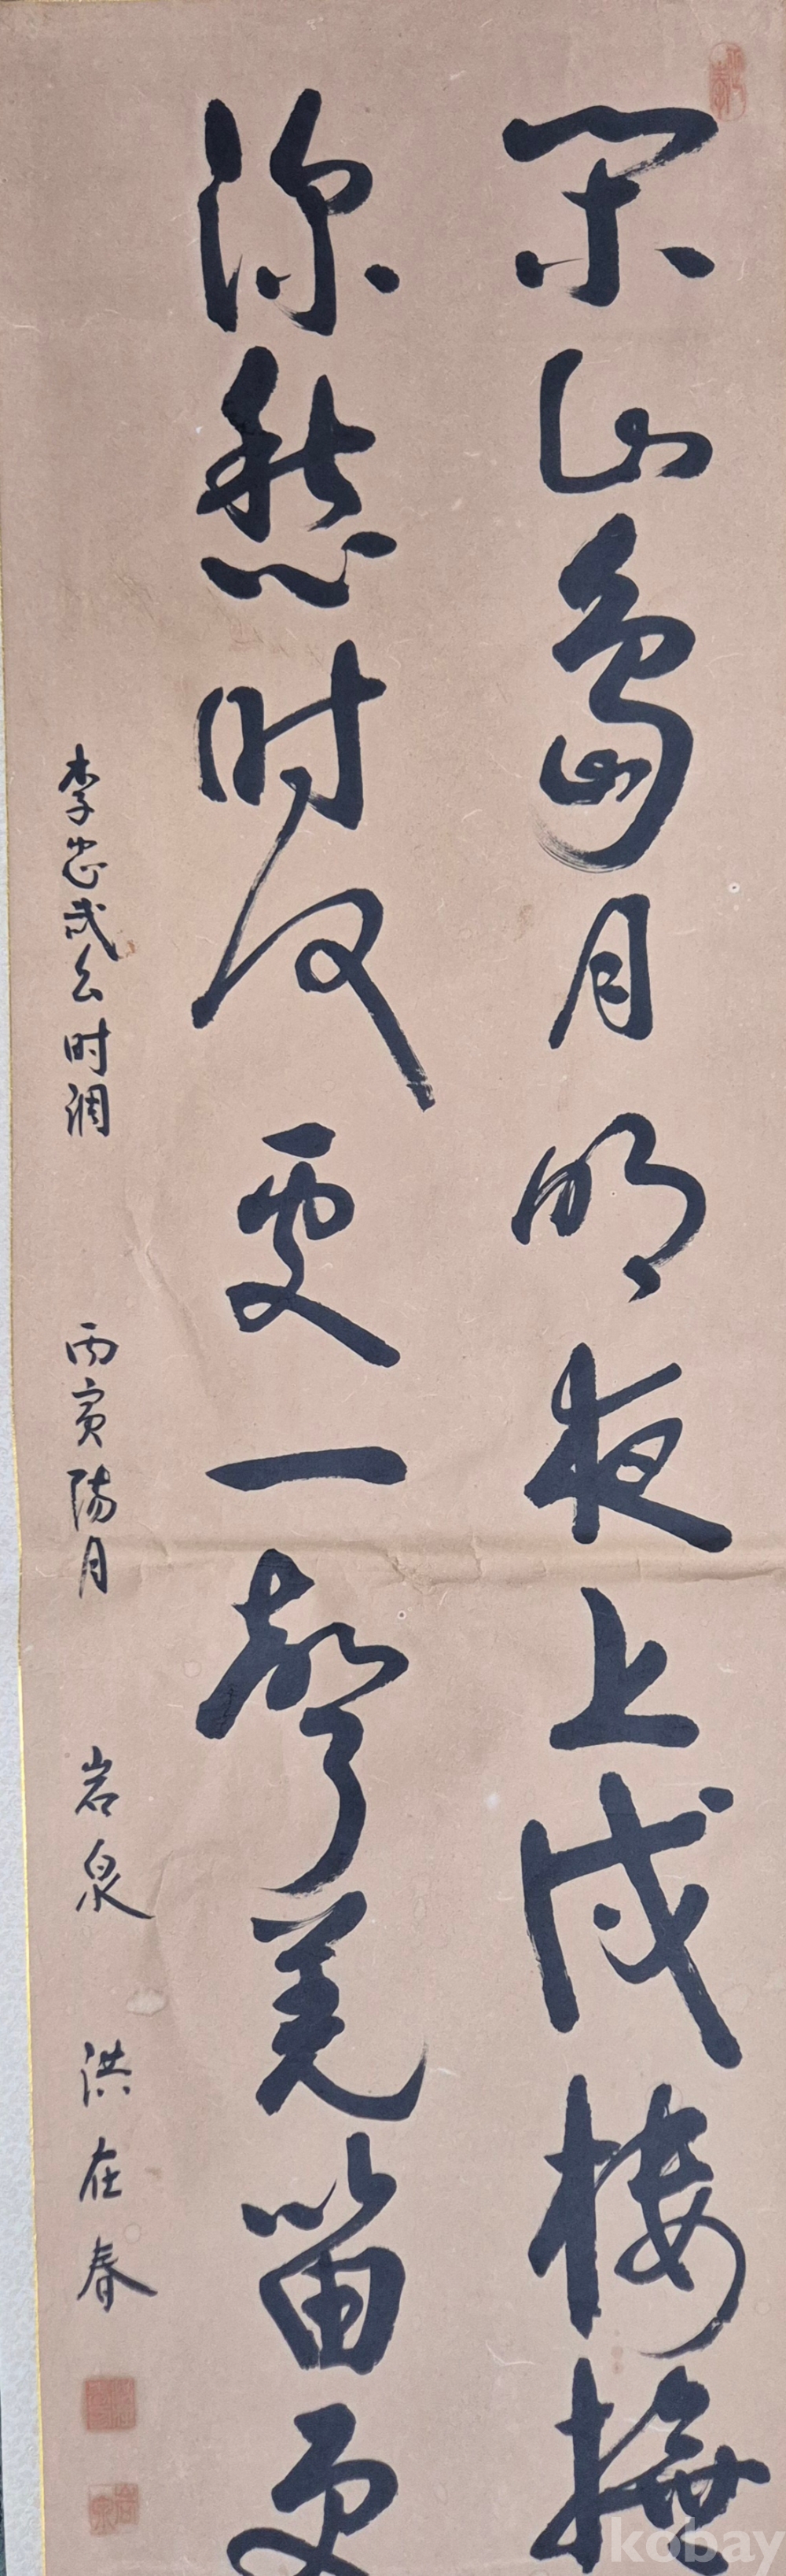 閑山島月明夜上戍樓撫
深愁時何處一聲羌笛更
李忠武公時調 丙寅陽月 岩泉 洪在春
kobay